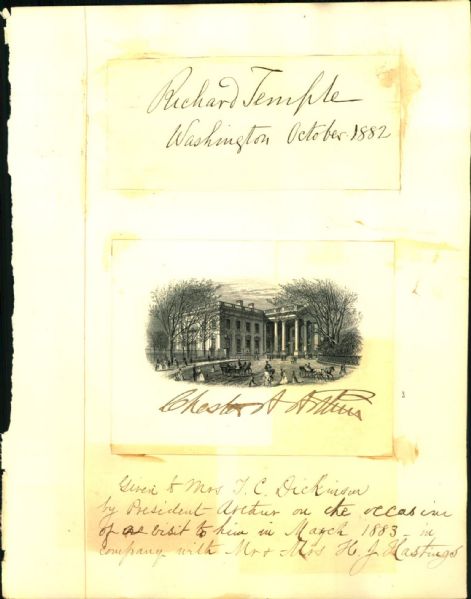 Richard Temple
Washington October 1882
Chester A Arthur
Given to Mrs T. C. Dickinson
by President Arthur on the occasion
of a visit to him in March 1883 in
company with Mr & Mrs H. J. Hastings